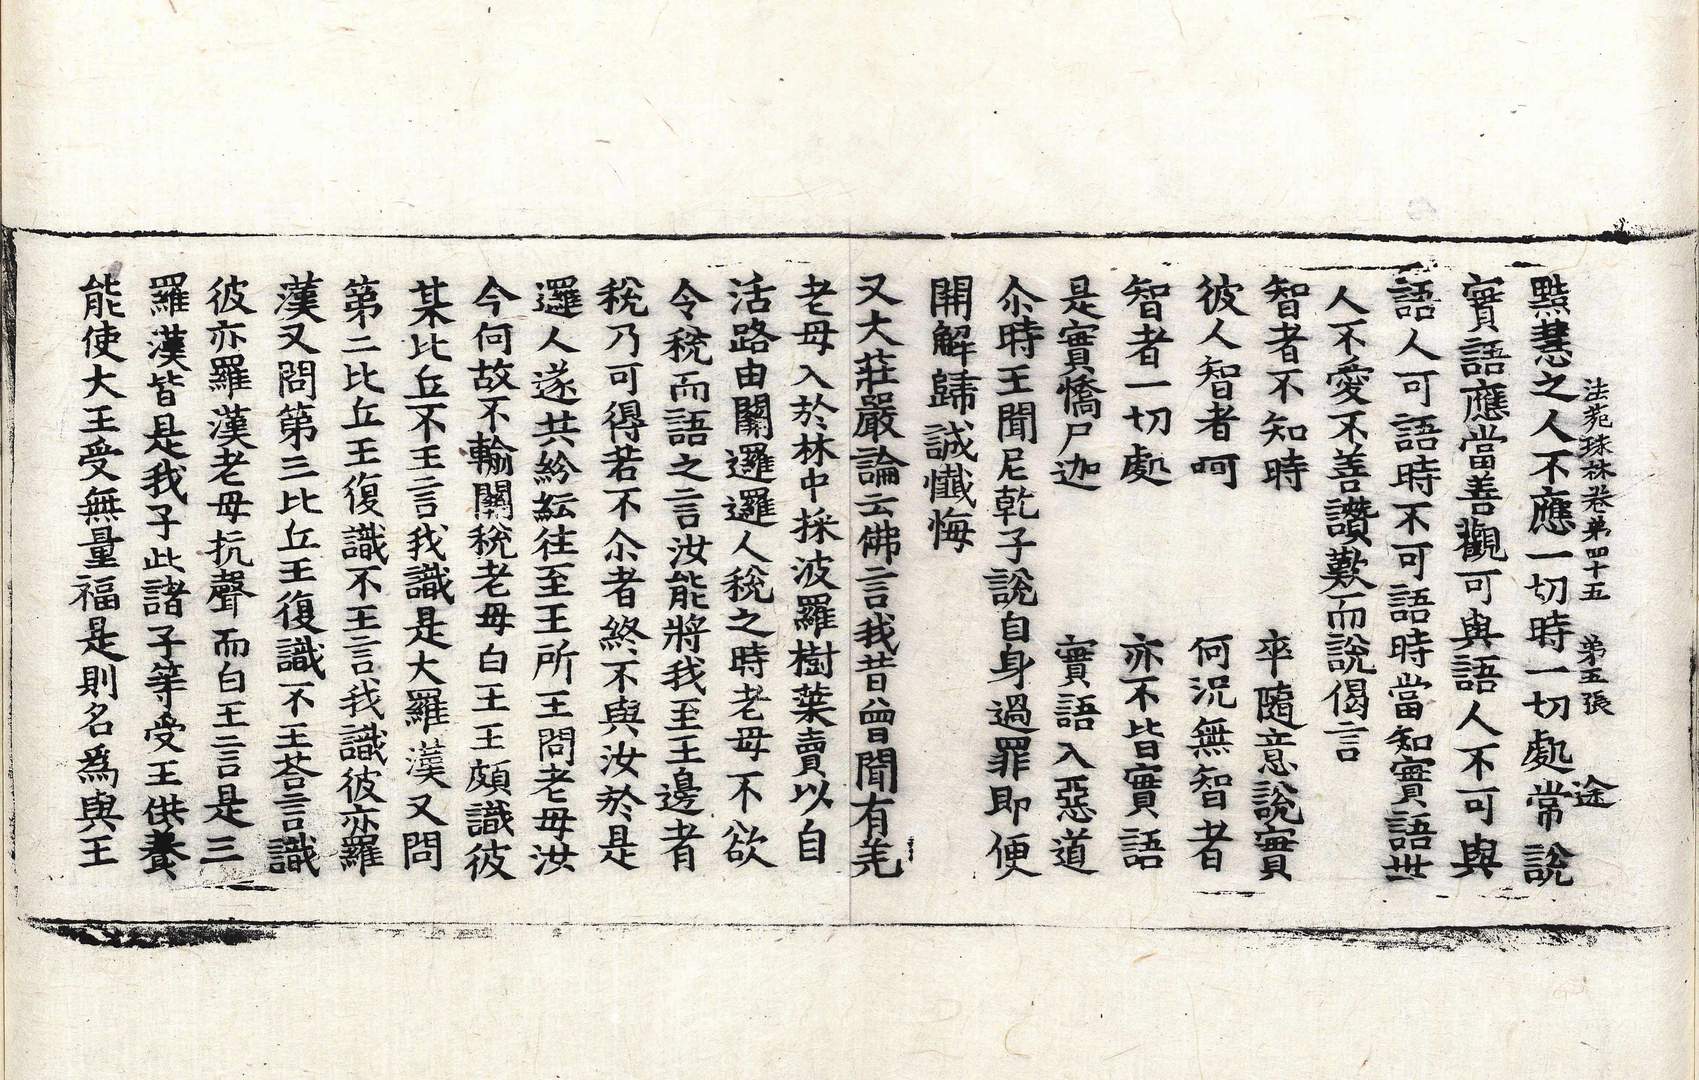 法苑珠林卷苐四十五 苐五張 途
黠慧之人不應一切時一切處常說
實語應當善觀可與語人不可與
語人可語時不可語時當知實語世
人不愛不善讚歎而說偈言
智者不知時 卒隨意說實
彼人智者呵 何況無智者
智者一切處 亦不皆實語
是實憍尸迦 實語入惡道
尒時王聞尼乾子說自身過罪即便
開解歸誠懺悔
又大莊嚴論云佛言我昔曾聞有羌
老母入於林中採波羅樹葉賣以自
活路由關邏邏人稅之時老母不欲
令稅而語之言汝能將我至王邊者
稅乃可得若不尒者終不與汝於是
邏人遂共紛紜往至王所王問老母汝
今何故不輸關稅老母白王王頗識彼
某比丘不王言我識是大羅漢又問
第二比丘王復識不王言我識彼亦羅
漢又問第三比丘王復識不王荅言識
彼亦羅漢老母抗聲而白王言是三
羅漢皆是我子此諸子等受王供養
能使大王受無量福是則名爲與王